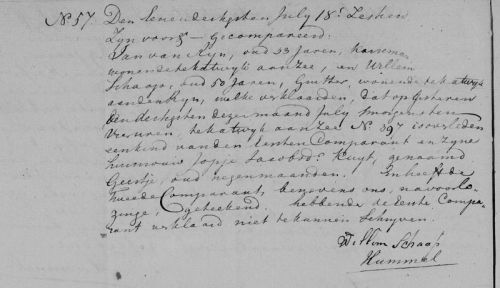 N°57. Den Eenendertigsten July 18c. Zestien
Zyn voor ons Gecompareerd:
Jan van Ryn, oud 33 Jaren,
wonende te Katwyk aan Zee, en Willem
Schaap, oud 50 Jaren, wonende te Katwyk
aan den Ryn, welke verklaarden, dat op Gisteren
den dertigsten dezer maand July morgens ten
uren, te Katwyk aan Zee N° 397 is overleden
een kind van den eersten Comparant en Zyne
huisvrouw Jopje Jacobsd. Kuyt, genaamd
Geertje, oud negen maanden. En heeft de
Tweede Comparant, benevens ons, na voorle-
zinge, geteekend. hebbende de Eerste Compa-
rant verklaard niet te kunnen Schryven.
Willem Schaap
Hummel